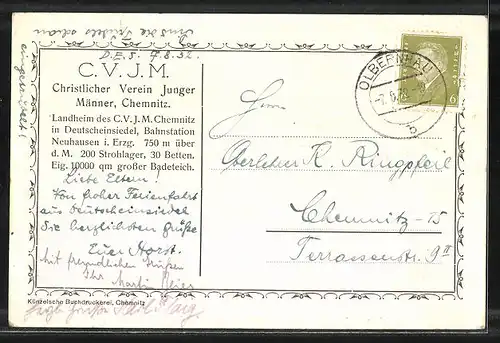 Sind die Trudels schon
eingerückt?
D.E.S. 7.8.32.
C.V.J.M.
Christlicher Verein Junger
Männer, Chemnitz.
Landheim des C.V.J.M. Chemnitz
in Deutscheinsiedel, Bahnstation
Neuhausen i. Erzg. 750 m über
d. M. 200 Strohlager, 30 Betten.
Eig. 10000 qm großer Badeteich.
Liebe Eltern!
Von froher Ferienfahrt
aus Deutscheinsiedel
die herzlichsten Grüße
Euer Horst.
Mit freundlichen Grüßen
Ihr Martin
Künzelsche Buchdruckerei, Chemnitz
OLBERNHAU
b
6
Herrn
Oberlehrer K. Ringpfeil
Chemnitz-15
Terrassenstr. 9 II